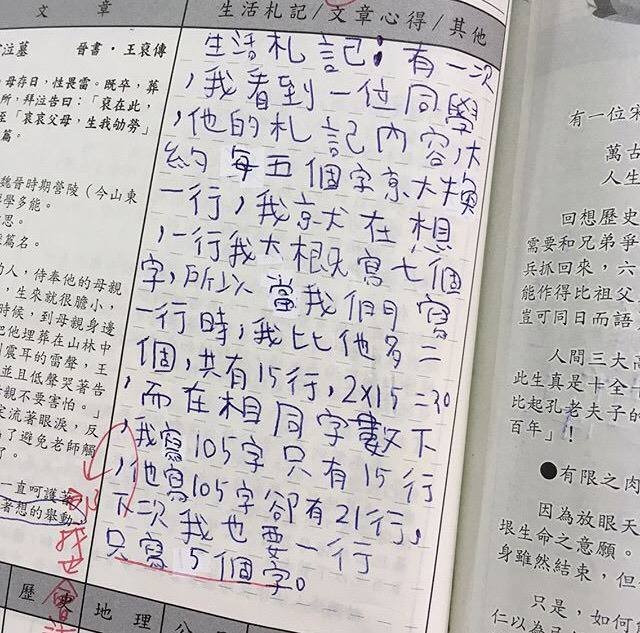 文 章
生活札記/文章心得/其他
泣墓 晉書・王裒傳
母存日，性畏雷。既卒，葬
所，拜泣告曰：「裒在此，
至「哀哀父母，生我劬勞」
篇。
魏晉時期營陵（今山東
學多能。
思。
篇名。
的人，侍奉他的母親
，生來就很膽小，
時候，到母親身邊
把他埋葬在山林中
到震耳的雷聲，王
並且低聲哭著告
親不要害怕。」
定流著眼淚，反
為了避免老師觸
了。
一直呵護著
著想的舉動
生活札記：有一次
，我看到一位同學
，他的札記內容，大
約每五個字就換
一行，我就在想
，一行我大概寫七個
字，所以當我們寫
一行時，我比他多二
個，共有15行，2x15=30
，而在相同字數下
，我寫105字只有15行
，他寫105字卻有21行，
下次我也要一行
只寫5個字。
歷史 地理
有一位宋
萬古
人生
回想歷史
需要和兄弟爭
兵抓回來，六
能作得比祖父
豈可同日而語
人間三大高
此生真是十全十
比起孔老夫子的
百年」！
●有限之肉
因為放眼天
垠生命之意願。
身雖然結束，但
只是，如何寫
仁以為己